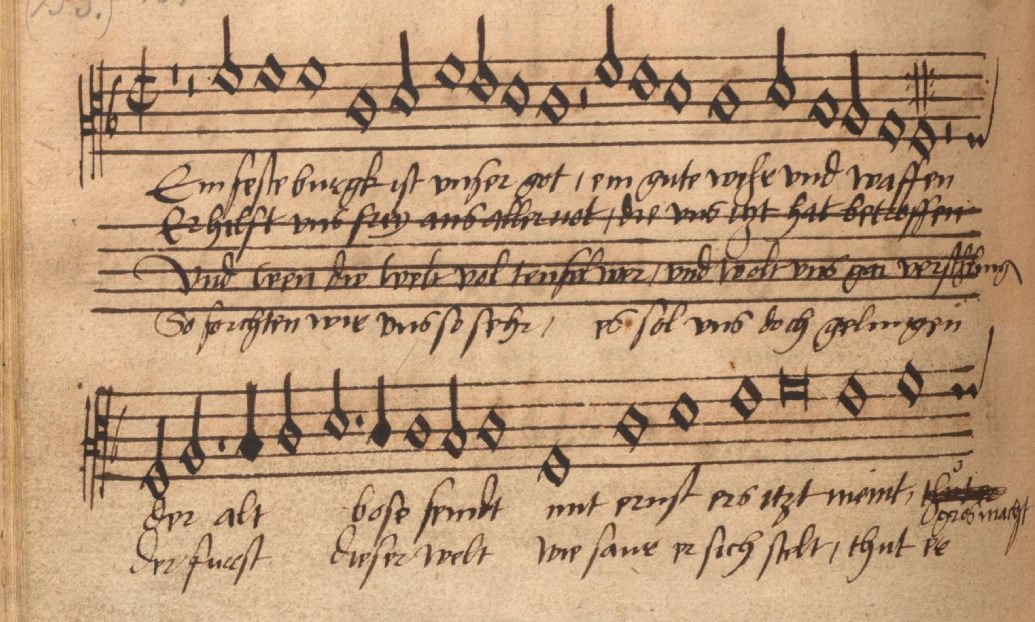 Ein feste burgk ist vnser got, ein gute wehr vnd waffen
Er hilfft vns frey aus aller not, die vns itzt hat betroffen
Vnd wen die welt vol teufel wer, vnd wolt vns gar verschling
So forchten wir vns so sehr, es sol vns doch gelingen
der alt bose feindt mit ernst ers itzt meint,
gros macht
der furst dieser welt wie saur er sich stelt, thut er